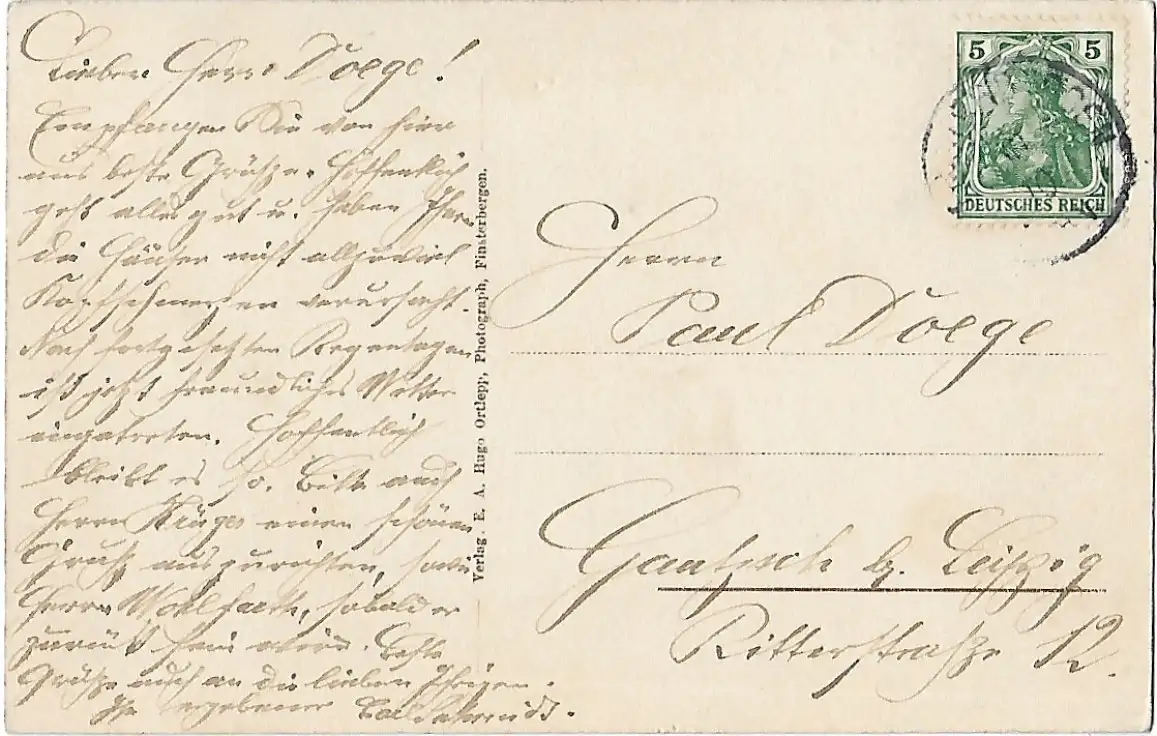 Lieber Herr Doege!
Empfangen Sie von hier
aus beste Grüße. Hoffentlich
geht alles gut u. haben Ihnen
die Häuser nicht allzuviel
Kopfschmerzen verursacht.
Nach fortgesetzten Regentagen
ist jetzt freundliches Wetter
eingetreten. Hoffentlich
bleibt es so. Bitte auch
Herrn Krüger einen schönen
Gruß auszurichten, sowie
Herrn Wohlfarth, sobald er
zurück sein wird. Beste
Grüße auch an die lieben Ihrigen.
Ihr ergebener
Verlag. E. A. Hugo Ortlepp, Photograph, Finsterbergen.
5 5
DEUTSCHES REICH
Herrn
Paul Doege
Gautzsch b. Leipzig
Ritterstraße 12.